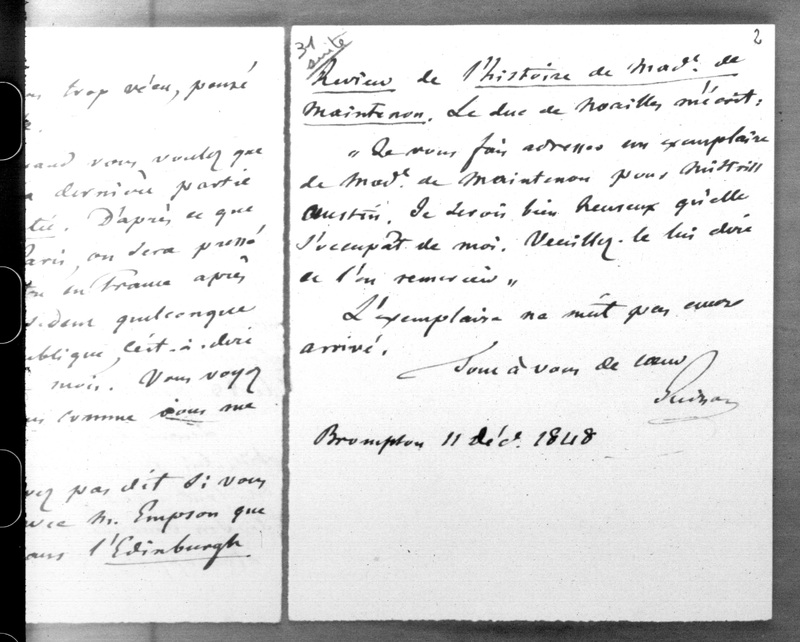 trop vécu, pensé
quand vous voulez que
dernière partie
D'après ce que
Paris, on sera pressé
en France après
quelconque
publique, c'est-à-dire
mois. Vous voyez
comme vous me
pas dit si vous
avec M. Empson que
dans l'Edinburgh
2
31
suite
Review de l'histoire de Mad.e de
Maintenon. Le duc de Noailles m'écrit:
"Je vous fais adresser un exemplaire
de Mad.e de Maintenon pour Mistriss
Austin. Je serois bien heureux qu'elle
s'occupât de moi. Veuillez-le lui dire
et l'en remercier"
L'exemplaire ne m'est pas encore
arrivé.
Tout à vous de cœur
Guizot
Brompton 11 Déc. 1848